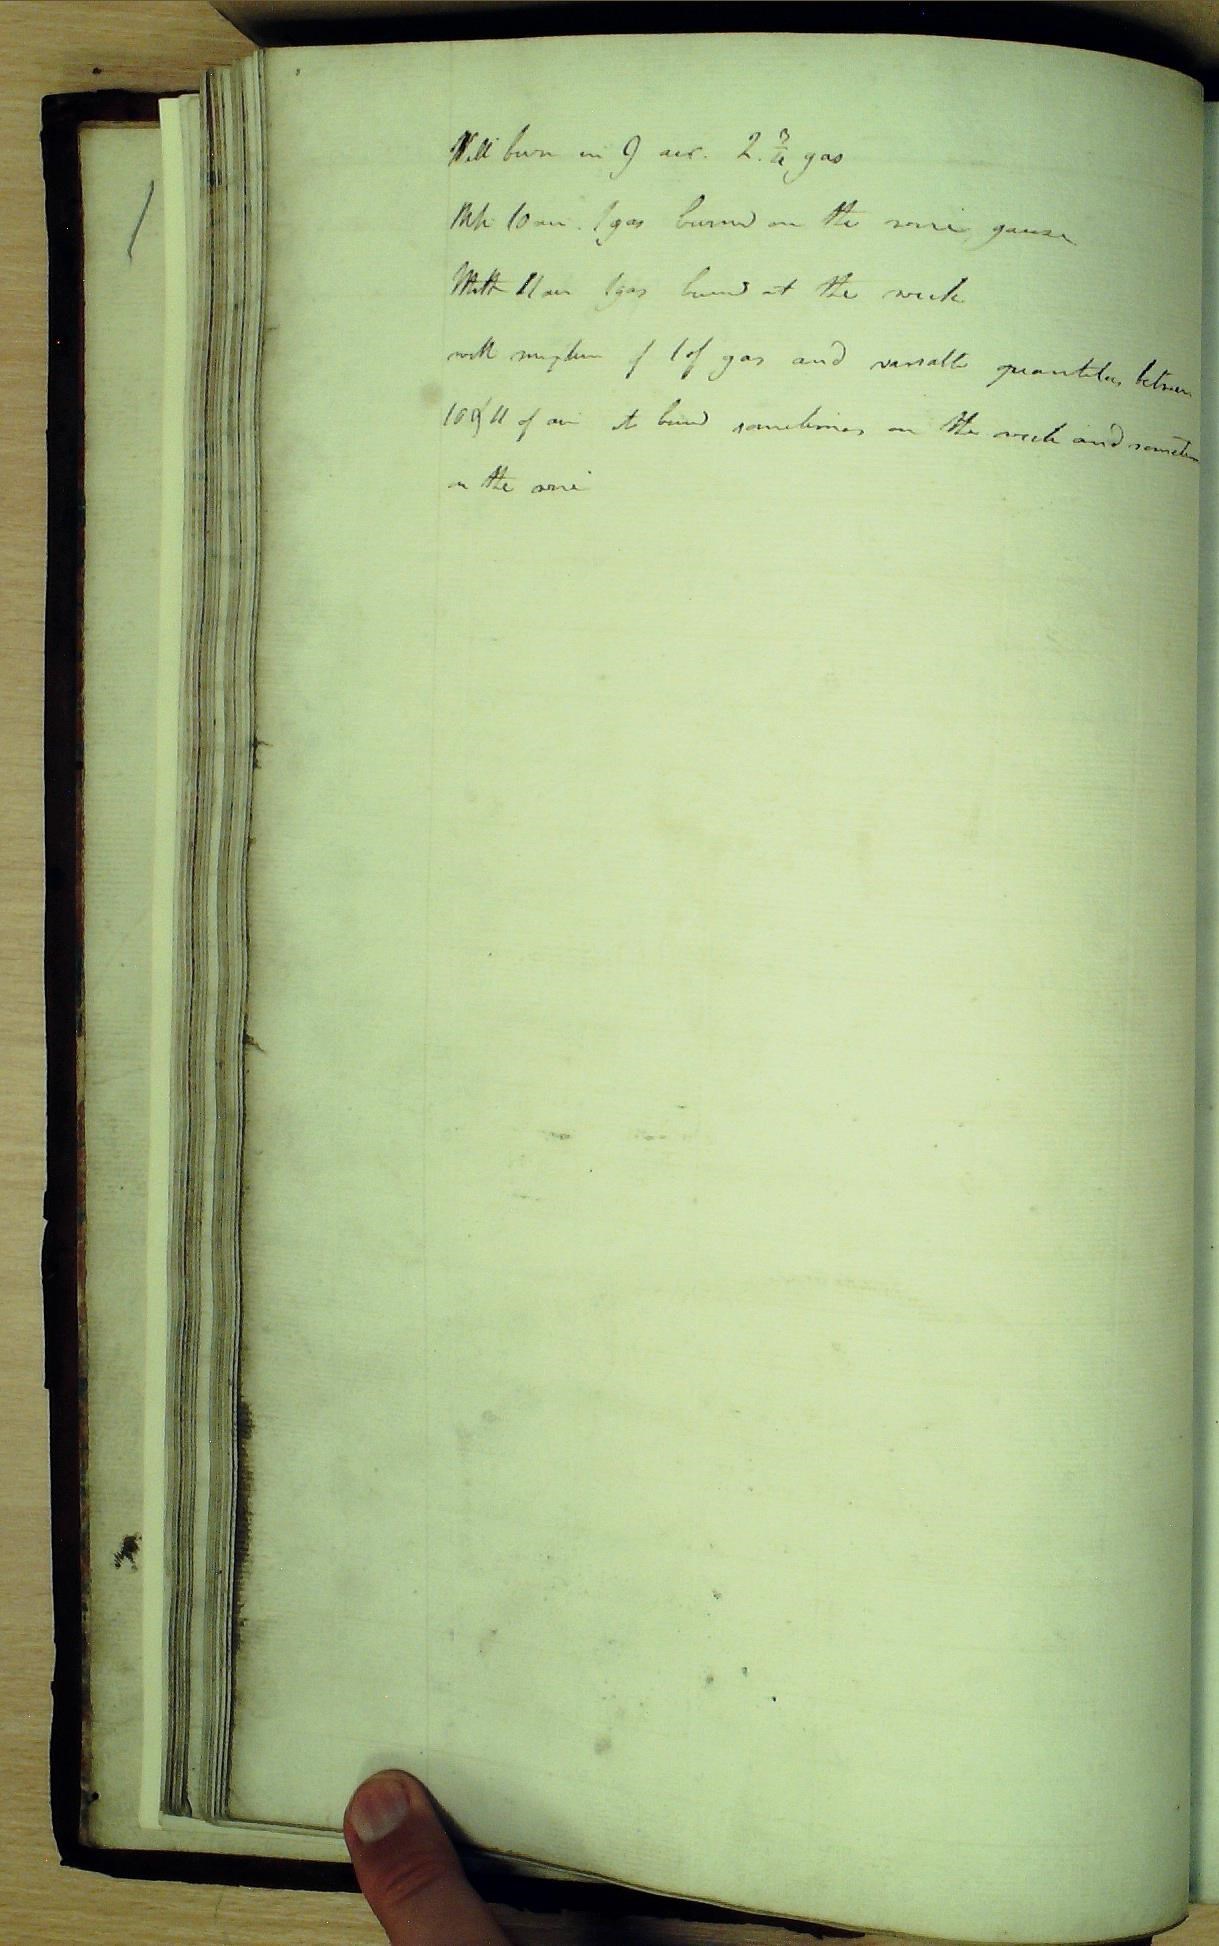 Will burn in 9 air. 2. 3/4 gas
With 10 air. 1 gas burnd on the wire gauze
With 11 air 1 gas burnd at the wick
with mixture of 1 of gas and variable quantities between
10 & 11 of air it burnd sometimes on the wick and sometimes
on the wire